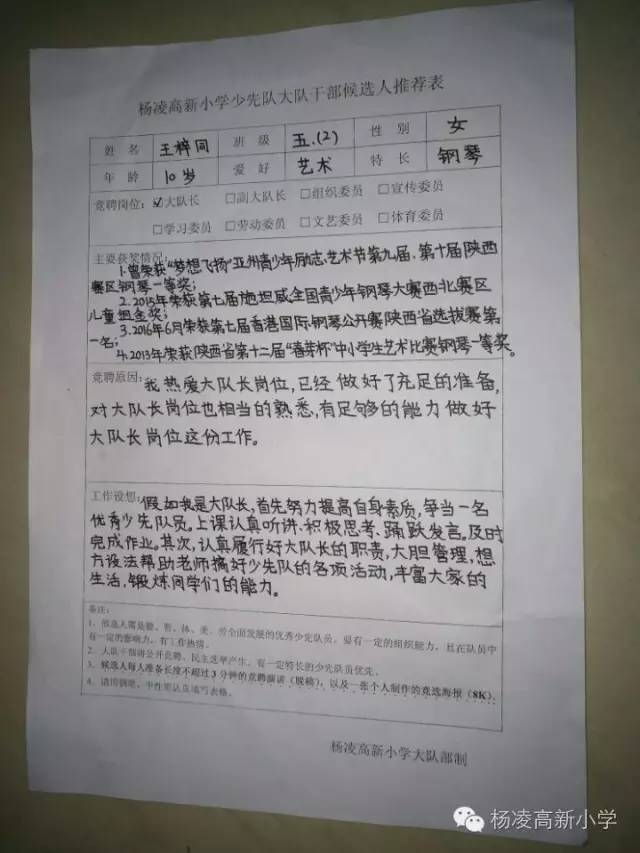 杨凌高新小学少先队大队干部候选人推荐表
姓 名 王梓同 班 级 五.(2) 性 别 女
年 龄 10岁 爱 好 艺术 特 长 钢琴
竞聘岗位: ☑大队长 □副大队长 □组织委员 □宣传委员
□学习委员 □劳动委员 □文艺委员 □体育委员
主要获奖情况:
1.曾荣获“梦想飞扬”亚州青少年励志艺术节第九届、第十届陕西
赛区钢琴一等奖;
2.2015年荣获第七届施坦威全国青少年钢琴大赛西北赛区
儿童组金奖;
3.2016年6月荣获第七届香港国际钢琴公开赛陕西省选拔赛第
一名;
4.2013年荣获陕西省第十二届“春芽杯”中小学生艺术比赛钢琴一等奖。
竞聘原因:我热爱大队长岗位,已经做好了充足的准备,
对大队长岗位也相当的熟悉,有足够的能力做好
大队长岗位这份工作。
工作设想:假如我是大队长,首先努力提高自身素质,争当一名
优秀少先队员。上课认真听讲、积极思考、踊跃发言,及时
完成作业。其次,认真履行好大队长的职责,大胆管理,想
方设法帮助老师搞好少先队的各项活动,丰富大家的
生活,锻炼同学们的能力。
备注:
1、候选人需是德、智、体、美、劳全面发展的优秀少先队员,要有一定的组织能力,且在队员中
有一定的影响力,有工作热情。
2、大队干部将公开竞聘,民主选举产生,有一定特长的少先队员优先。
3、候选人每人准备长度不超过3分钟的竞聘演讲(脱稿),以及一张个人制作的竞选海报(8K)。
4、请用钢笔、中性笔认真填写表格。
杨凌高新小学大队部制
杨凌高新小学